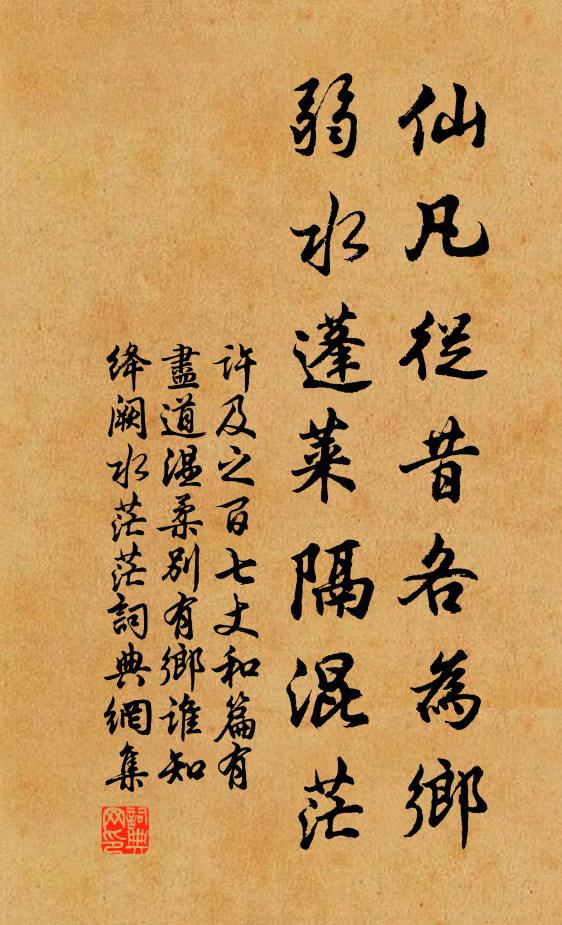 仙凡從昔各為鄉
弱水蓬萊隔混茫
許及之百七丈和篇有
盡道溫柔別有鄉誰知
絳闕水茫茫詞典網集
詞典网印